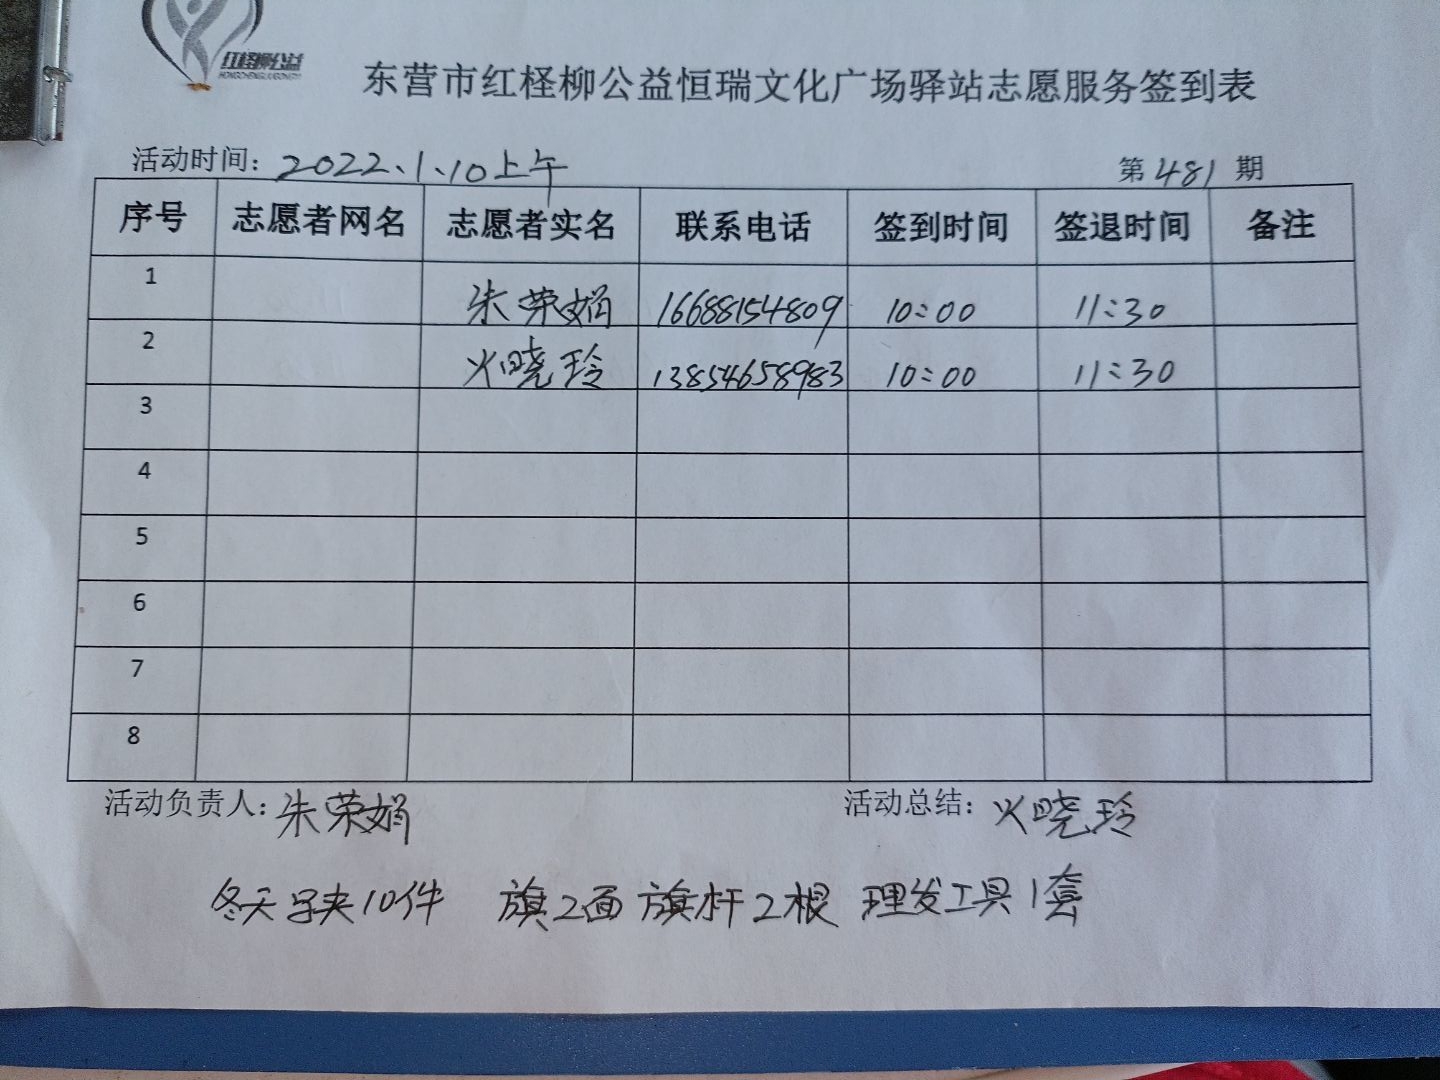 红柽柳公益
东营市红柽柳公益恒瑞文化广场驿站志愿服务签到表
活动时间：2022、1、10上午 第 481 期
序号 志愿者网名 志愿者实名 联系电话 签到时间 签退时间 备注
1 朱荣娟 16688154809 10:00 11:30
2 火晓玲 13854658983 10:00 11:30
3
4
5
6
7
8
活动负责人：朱荣娟 活动总结：火晓玲
冬天 夹10件 旗2面 旗杆2根 理发工具1套